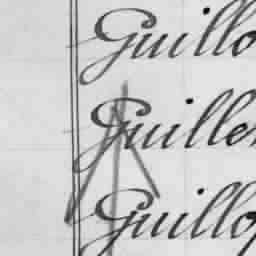 Guillo
Guiller
Guillo